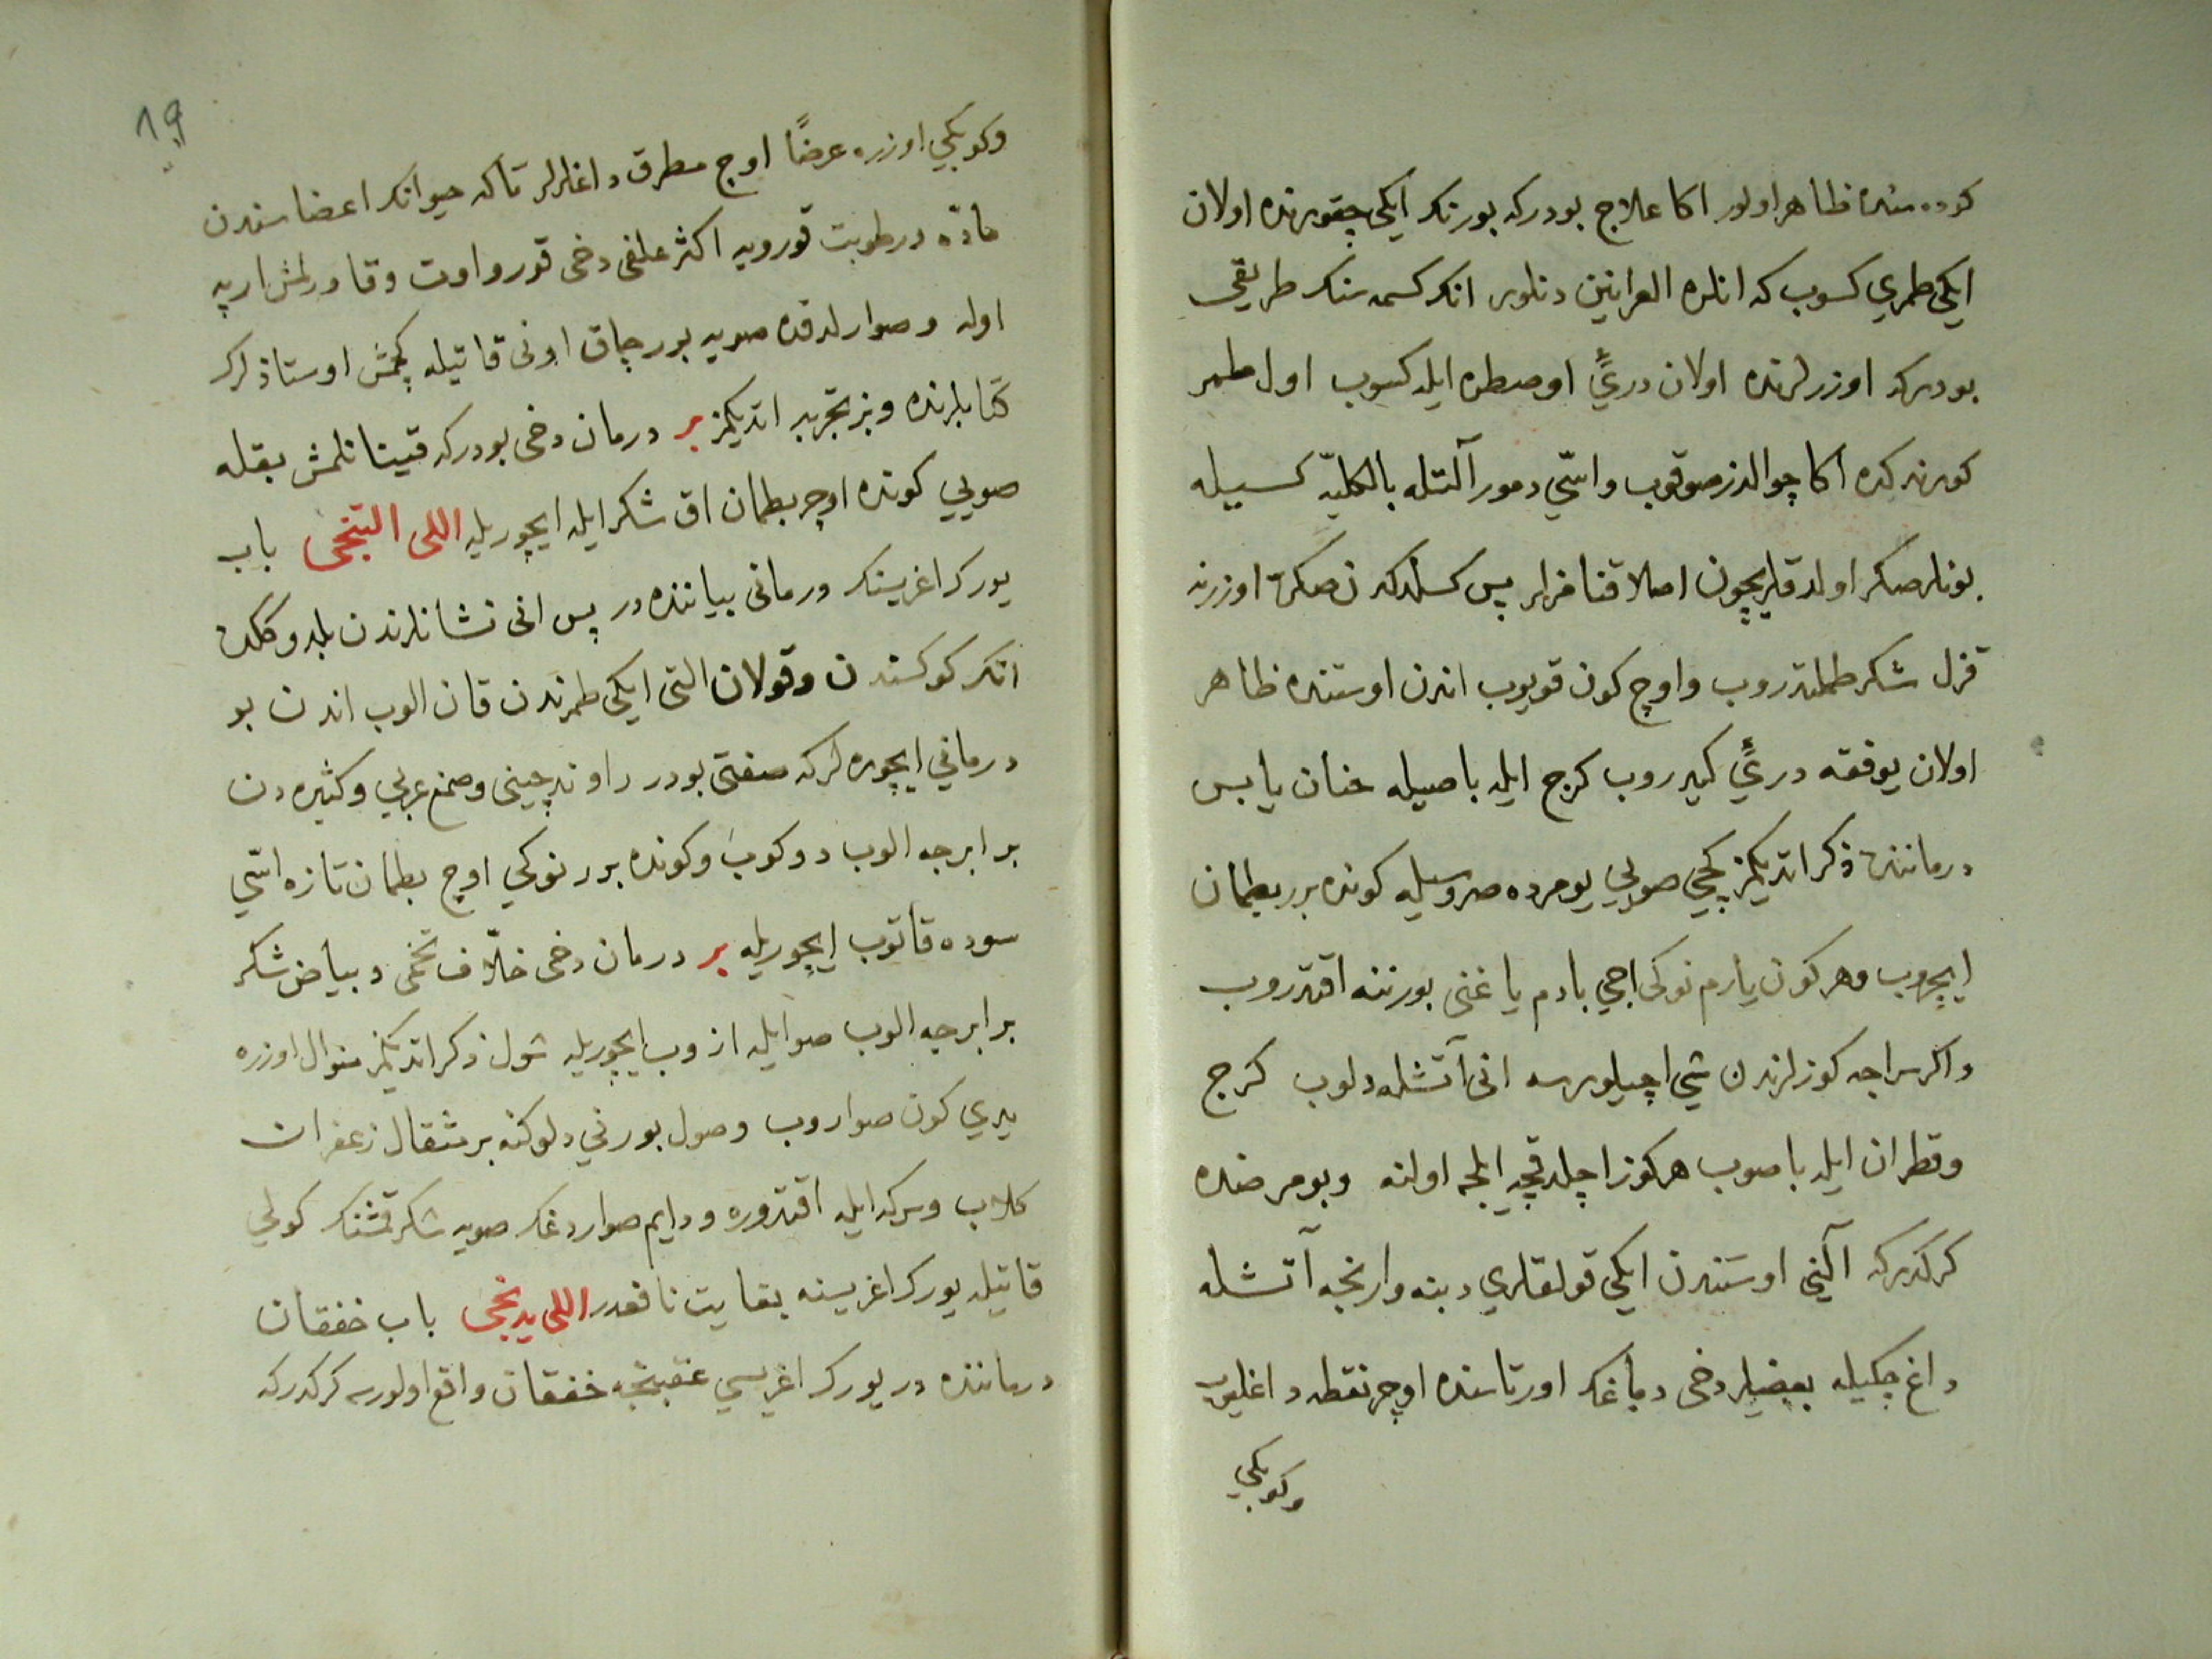 كوده سنده ظاهر اولور اكا علاج بودركه بورنك ايكى چقورنده اولان
ايكى طمري كسوب كه انلره العرانين دنلور انك كسمه سنك طريقى
بودركه اوزرلرنده اولان دريئ اوصطره ايله كسوب اول طمر
كورندكده اكا چوالدز صوقوب واسّي دمور آلتله بالكليّه كسيله
بونلر صكر اولدقلريچون اصلا قنامزلر پس كسلدكدن صكره اوزرنه
قزل شكر طملتدروب واوچ كون قويوب اندن اوستنده ظاهر
اولان يوفقه دريئ كيدروب كرج ايله باصيله خنان يابس
درماننده ذكر اتديكمز كچي صويي يومرده صروسيله كونده برر بطمان
ايچروب وهر كون يارم نوكى اجي بادم ياغنى بورننه اقتدروب
واكر سراجه كوزلرندن شي اچيلورسه انى آتشله دلوب كرج
وقطران ايله باصوب هر كوز اچلدقچه ايلجه اولنه وبو مرضده
كركدركه آلينى اوستندن ايكى قولقلري دبنه وارنجه آتشله
داغ چكيله بعضيلر دخى دماغك اورتاسنده اوچ نقطه داغليوب
وكوبكي
19
وكوبكي اوزره عرضًا اوچ مطرق داغلرلر تاكه حيوانك اعضاسندن
مادّه ورطوبت قورويه اكثر علفى دخى قورو اوت وقاورلمش ارپه
اوله وصوارلدقده صويه بورچاق اونى قاتيله كچمش اوستاذلرك
كتابلرنده وبز تجربه اتديكمز بر درمان دخى بودركه قيناتلمش بقله
صويي كونده اوچر بطمان اق شكر ايله ايچوريله اللى التنجى باب
يورك اغريسنك درمانى بياننده در پس انى نشانلرندن بلدوككده
انك كوكسندن وقولان التى ايكى طمرندن قان الوب اندن بو
درماني ايچوره لركه صفتى بودر راوند چينى وصمغ عربي وكثيره دن
برابرجه الوب دوكوب وكونده برر نوكي اوچ بطمان تازه اسّي
سوده قاتوب ايچوريله بر درمان دخى خلّاف تخمى وبياض شكر
برابرجه الوب صو ايله ازوب ايچوريله شول ذكر اتديكمز منوال اوزره
يدي كون صواروب وصول بورني دلوكنه بر مثقال زعفران
كلاب وسركه ايله اقتدوره ودايم صواردغك صويه شكر قمشنك كولي
قاتيله يورك اغريسنه بغايت نافعدر اللى يدنجى باب خفقان
درماننده در يورك اغريسي عقبنجه خفقان واقع اولورسه كركدركه